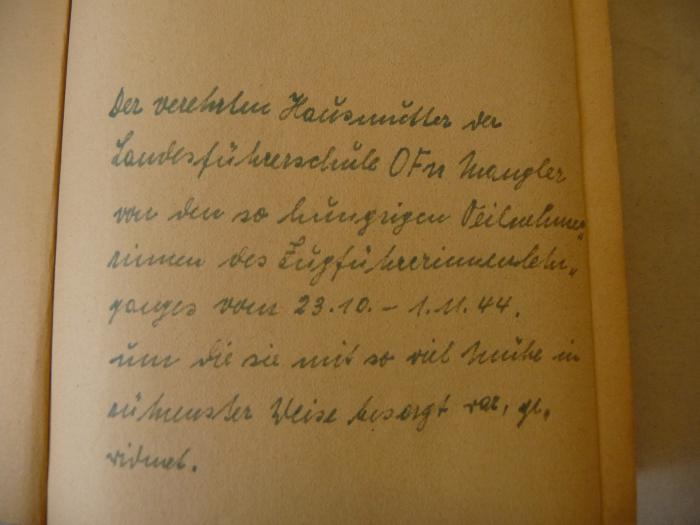 Der verehrten Hausmutter der
Landesführerschule OFn Mangler
von den so hungrigen Teilnehme„
rinnen des Zugführerinnenlehr„
ganges vom 23.10. - 1.11.44.
um die sie mit so viel Mühe in
rührenster Weise besorgt war, ge„
widmet.